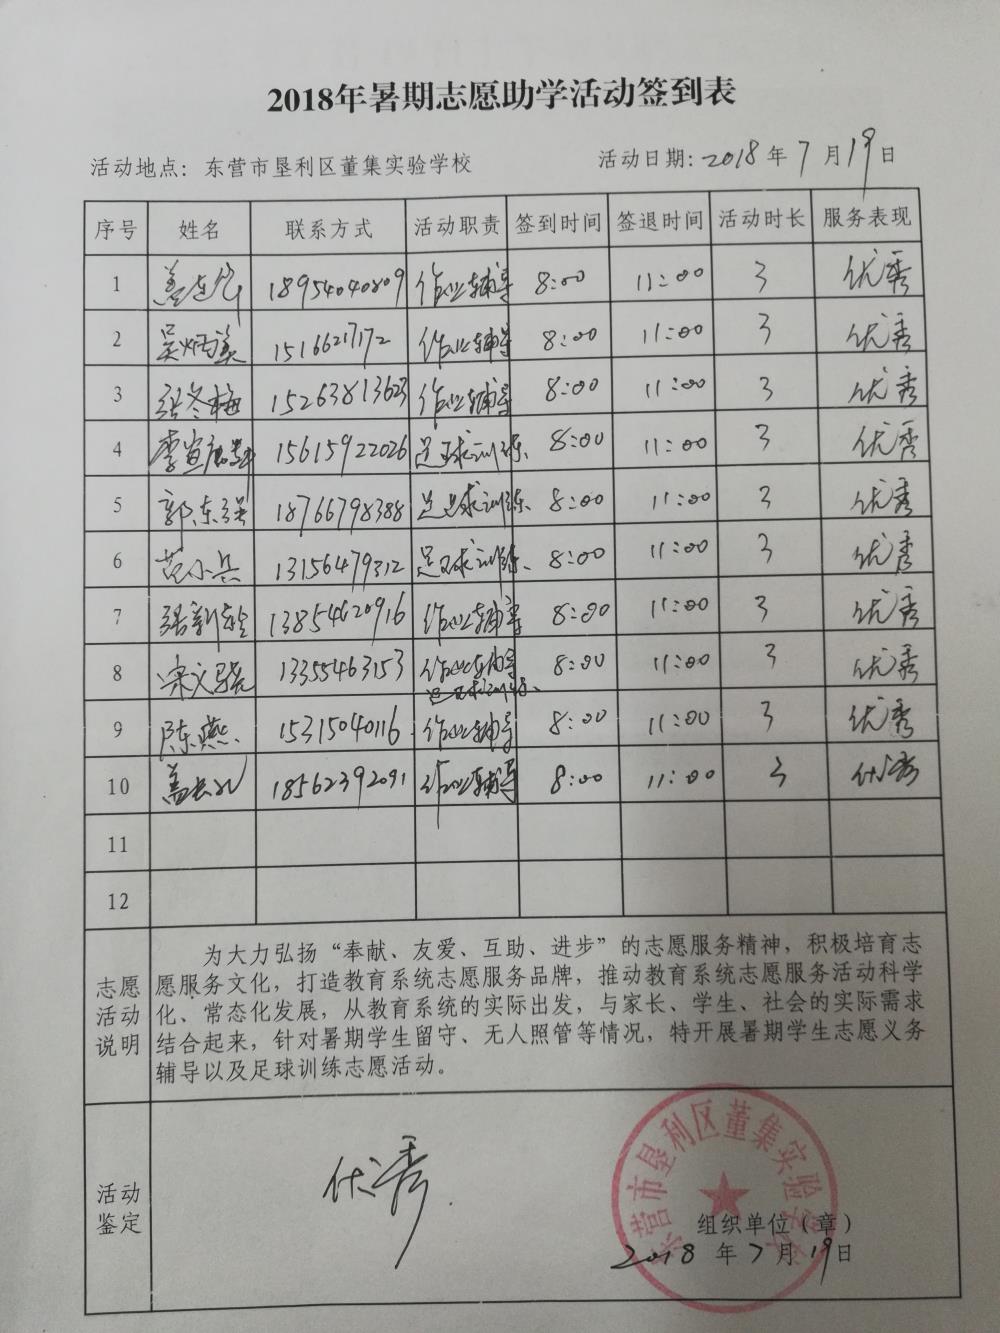 2018年暑期志愿助学活动签到表
活动地点：东营市垦利区董集实验学校 活动日期：2018年7月19日
序号 姓名 联系方式 活动职责 签到时间 签退时间 活动时长 服务表现
1 18954040809 作业辅导 8:00 11:00 3 优秀
2 吴炳美 15166217172 作业辅导 8:00 11:00 3 优秀
3 张冬梅 15263813623 作业辅导 8:00 11:00 3 优秀
4 李宣 15615922026 足球训练 8:00 11:00 3 优秀
5 郭东强 18766798388 足球训练 8:00 11:00 3 优秀
6 范小兵 13156479312 足球训练 8:00 11:00 3 优秀
7 张新 13854620916 作业辅导 8:00 11:00 3 优秀
8 宋文骁 13355463153 作业辅导 8:00 11:00 3 优秀
足球训练
9 陈燕 15315040116 作业辅导 8:00 11:00 3 优秀
10 盖长礼 18562392091 作业辅导 8:00 11:00 3 优秀
11
12
志愿活动说明
为大力弘扬“奉献、友爱、互助、进步”的志愿服务精神，积极培育志
愿服务文化，打造教育系统志愿服务品牌，推动教育系统志愿服务活动科学
化、常态化发展，从教育系统的实际出发，与家长、学生、社会的实际需求
结合起来，针对暑期学生留守、无人照管等情况，特开展暑期学生志愿义务
辅导以及足球训练志愿活动。
活动鉴定
优秀
东营市垦利区董集实验学校
组织单位（章）
2018年7月19日